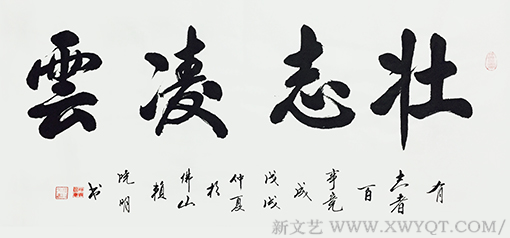 壮志凌雲
有志者百事竟成戊戌仲夏於佛山賴晓明书
新文艺 WWW.XWYQT.COM/